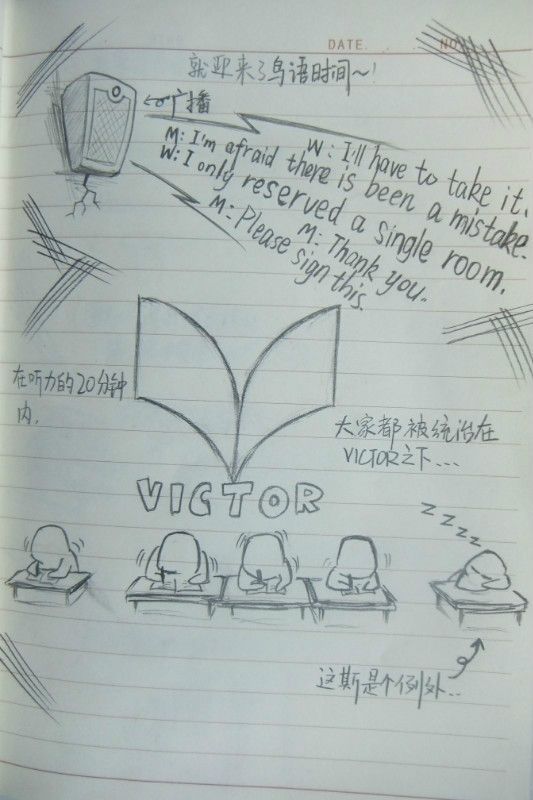 DATE. NO
就迎来了鸟语时间～!
广播
W: I'll have to take it.
M: I'm afraid there is been a mistake.
W: I only reserved a single room.
M: Thank you.
M: Please sign this.
在听力的20分钟
内.
大家都被统治在
VICTOR之下...
VICTOR
z z z z
这斯是个例外..